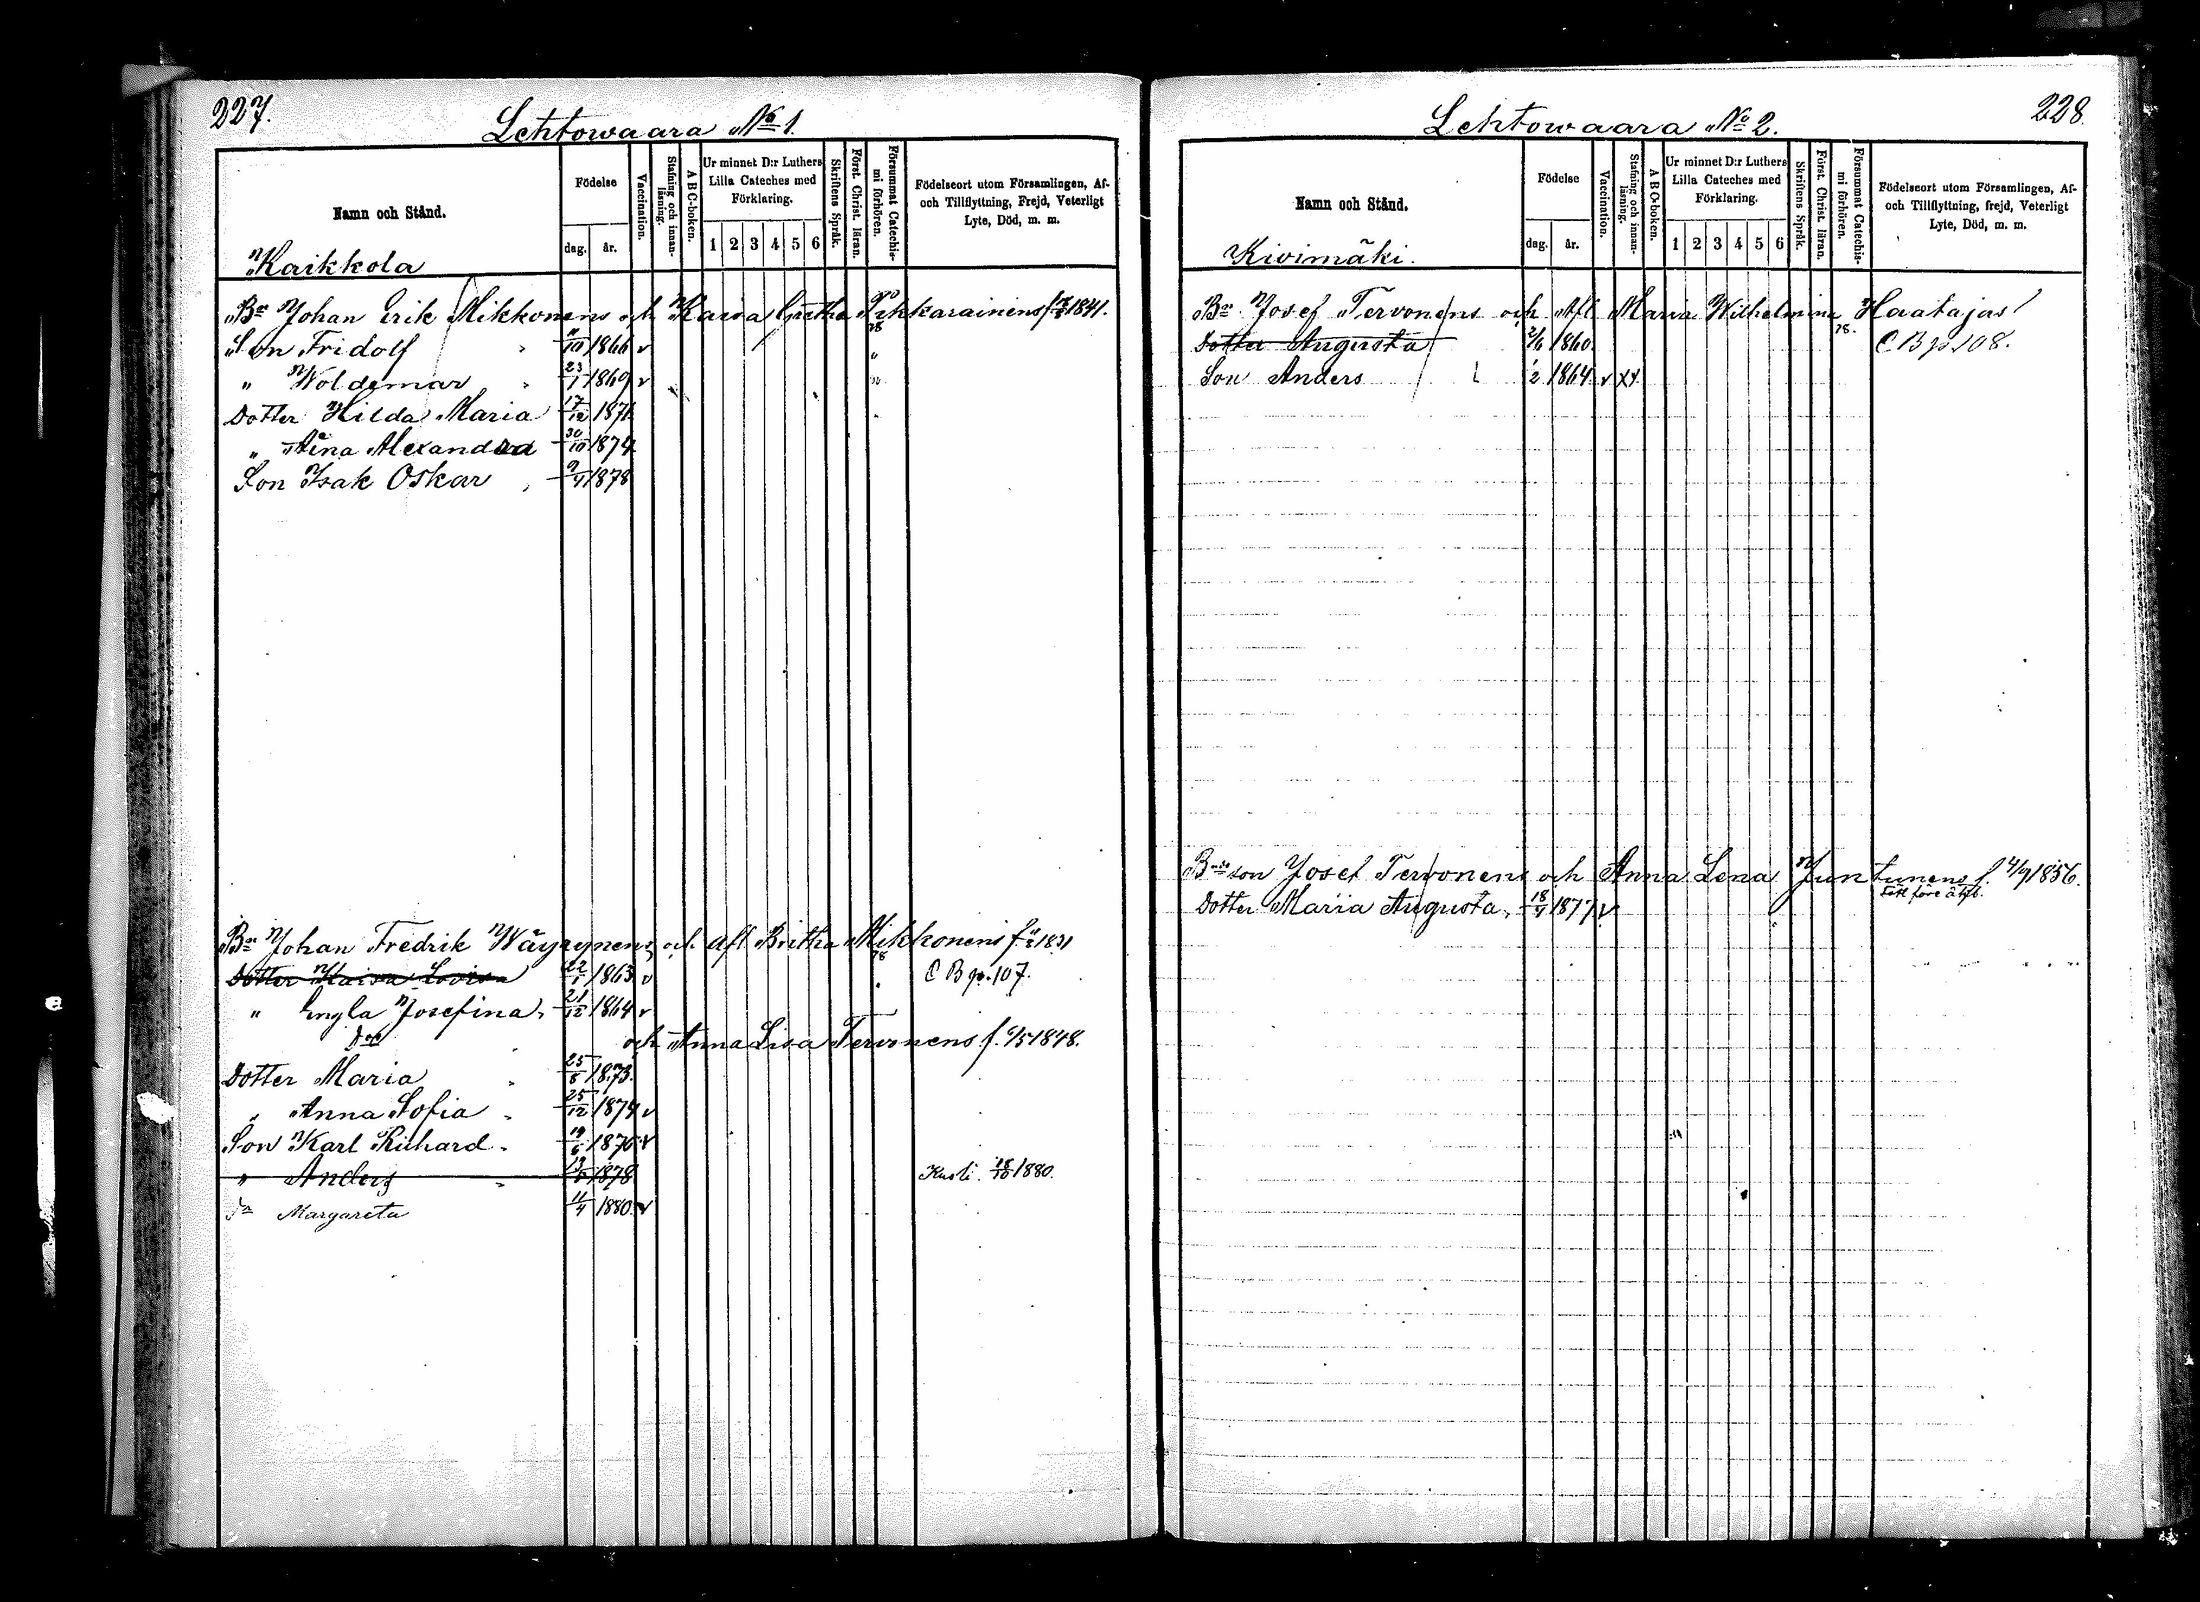 227.
Lehtowaara No 1.
Namn och Stånd.
Födelse
dag. år.
Vaccination.
Stafning och innanläsning.
A B C-boken.
Ur minnet D:r Luthers Lilla Cateches med Förklaring.
1 2 3 4 5 6
Skriftens Språk.
Först. Christ. läran.
Försummat Catechismi förhören.
Födelseort utom Församlingen, Af- och Tillflyttning, Frejd, Veterligt Lyte, Död, m. m.
Kaikkola
Bn Johan Erik Mikkonens och Kaisa Gretha Pikkarainens f. 1841.
Son Fridolf 11/10 1866 v
" Woldemar 23/1 1869 v
Dotter Hilda Maria 17/12 1871
" Aina Alexandra 30/10 1874
Son Isak Oskar 9/4 1878
Bn Johan Fredrik Wäyrynens och afl Britha Mikkonens f. 1831
78
Dotter Kaisa Lovisa 22/1 1863 v C B p. 107.
" Engla Josefina 21/12 1864 v
och Anna Lisa Tervonens f. 6/5 1848.
Dotter Maria 25/8 1873.
" Anna Sofia 25/12 1874 v
Son Karl Richard 19/6 1876 v
" Anders 1878 Kusli. 18/10 1880.
Dr Margareta 11/4 1880 v
228.
Lehtowaara No 2.
Namn och Stånd.
Födelse
dag. år.
Vaccination.
Stafning och innanläsning.
A B C-boken.
Ur minnet D:r Luthers Lilla Cateches med Förklaring.
1 2 3 4 5 6
Skriftens Språk.
Först. Christ. läran.
Försummat Catechismi förhören.
Födelseort utom Församlingen, Af- och Tillflyttning, frejd, Veterligt Lyte, Död, m. m.
Kivimäki.
Bn Josef Tervonens och Afl Maria Wilhelmina Haatajas
78.
Dotter Augusta 2/6 1860. C B p. 108.
Son Anders 1/2 1864 v xx
Bnde son Josef Tervonens och Anna Lena Juntunens f. 4/9 1856.
född före äkt.
Dotter Maria Augusta 18/4 1877 v